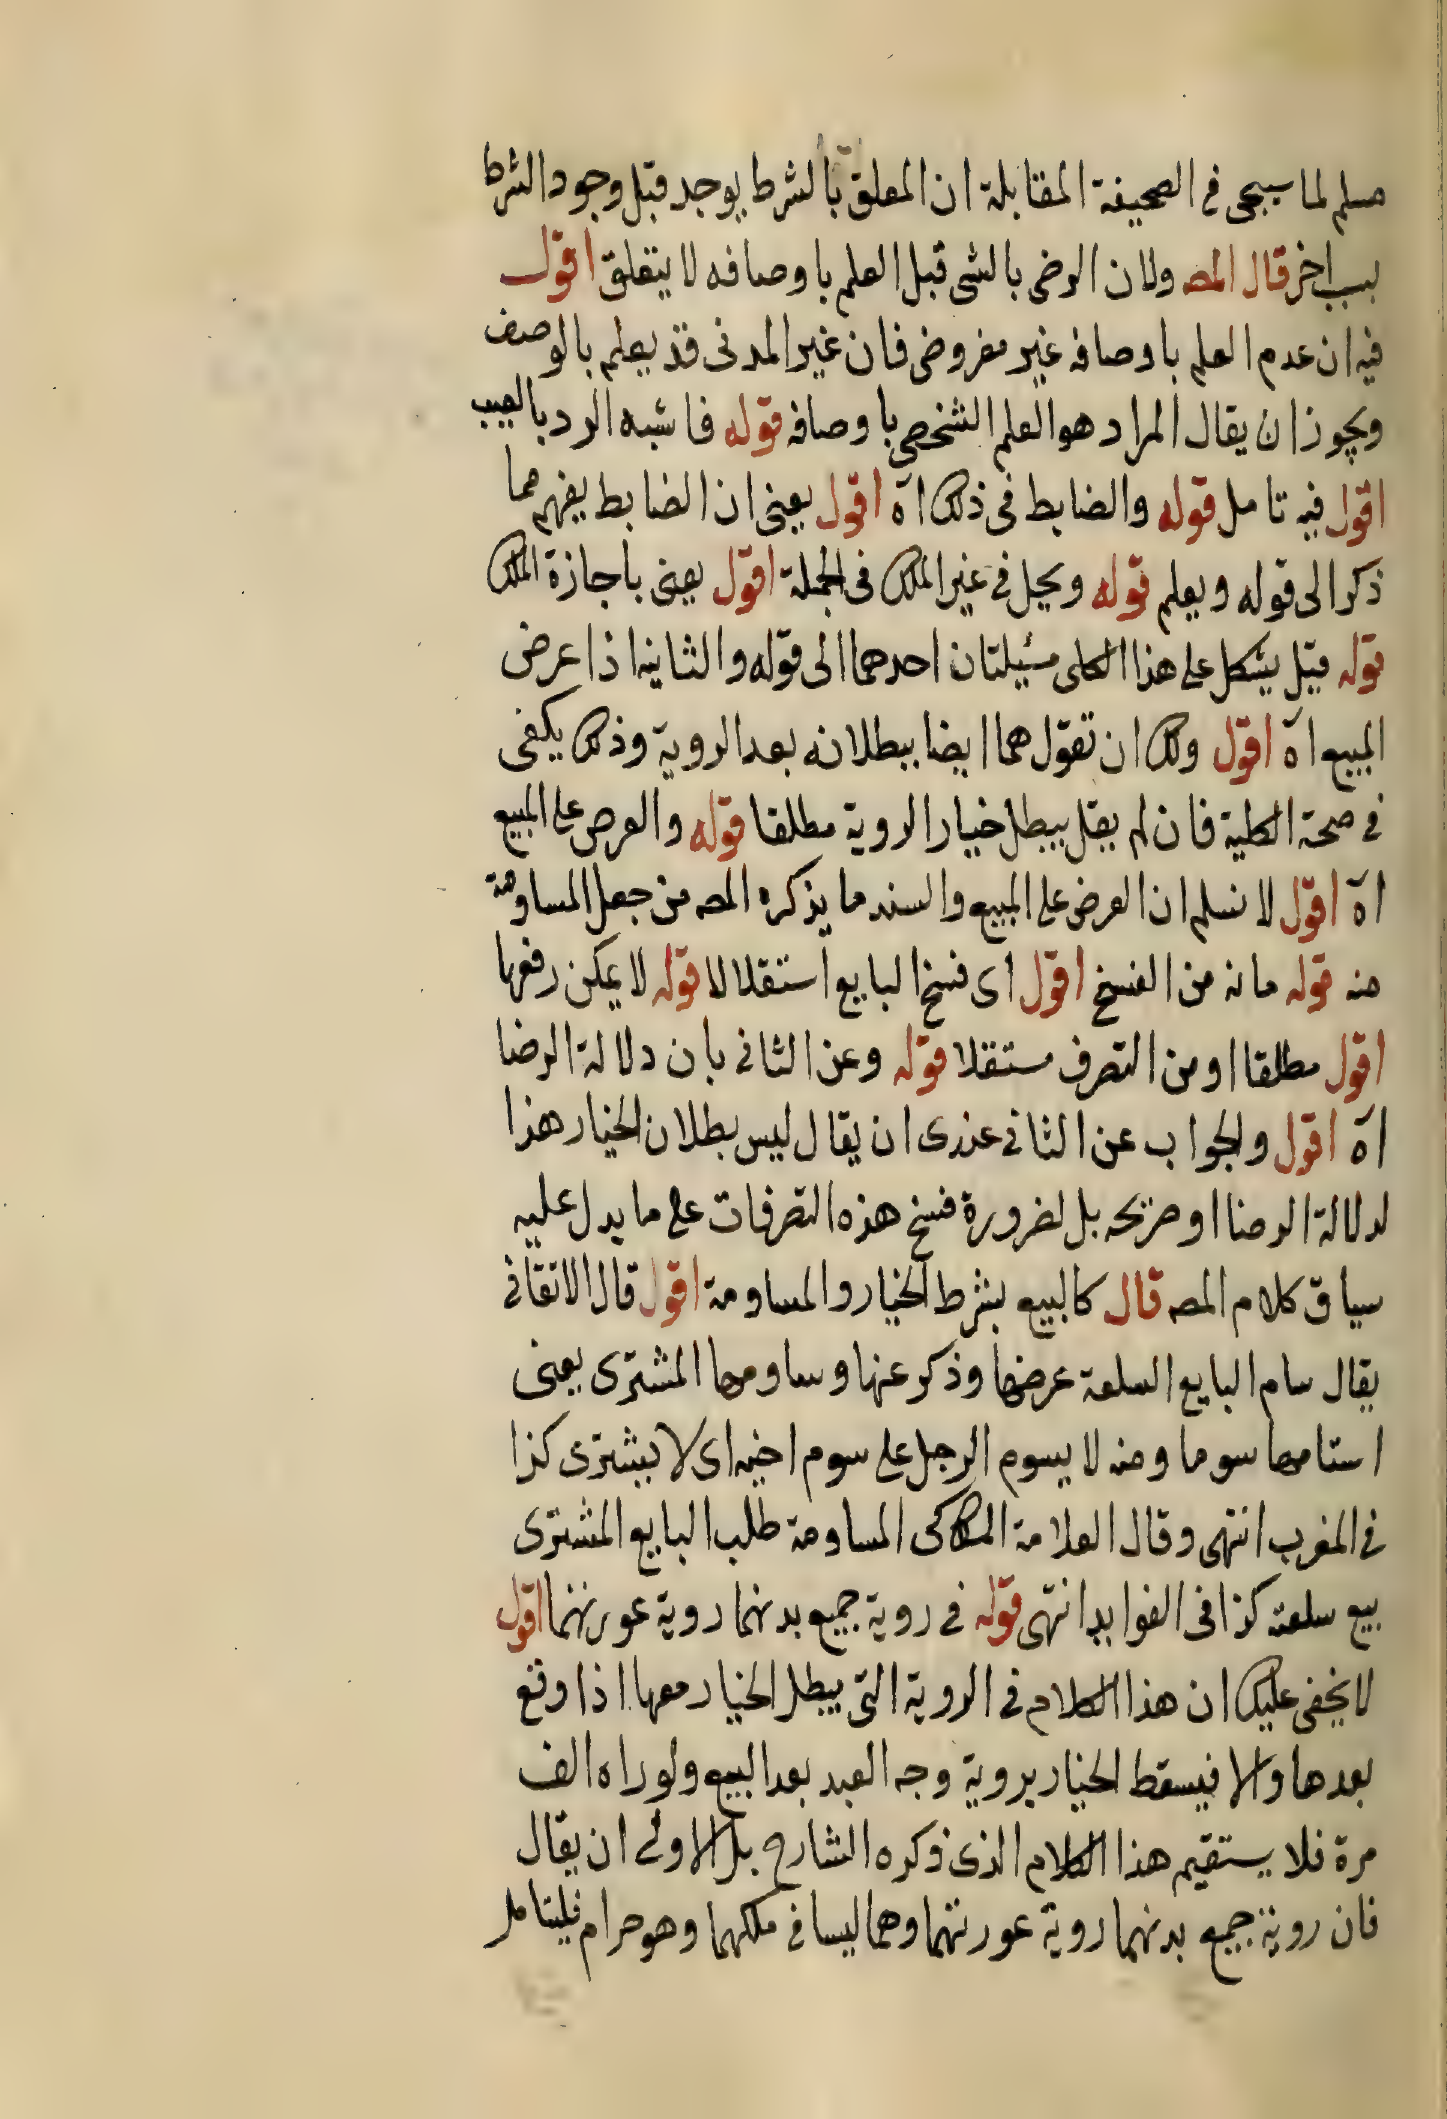 مسلم لما سيجى فى الصحيفة المقابلة ان المعلق بالشرط يوجد قبل وجود الشرط
بسبب اخر قال المصـ ولان الرضى بالشى قبل العلم باوصافه لا يتعلق اقول
فيه ان عدم العلم باوصافه غير مفروض فان غير المدنى قد يعلم بالوصف
ويجوز ان يقال المراد هو العلم الشخصى باوصافه قوله فاشبه الرد بالعيب
اقول فيه تامل قوله والضابط فى ذلك اه اقول يعنى ان الضابط يفهم مما
ذكر الى قوله ويعلم قوله ويحل فى غير الملك فى الجملة اقول يعنى باجازة الملك
قوله قيل يشكل على هذا الكلى مسئيلتان احدهما الى قوله والثانيه اذا عرض
المبيع اه اقول ولك ان تقول هما ايضا يبطلانه بعد الروية وذلك يكفى
فى صحة الكلية فان لم يقل يبطل خيار الروية مطلقا قوله والعرض على المبيع
اه اقول لا نسلم ان العرض على المبيع والسند ما يذكره المصـ من جعل المساومة
منه قوله مانه من الفسخ اقول اى فسخ البايع استقلالا قوله لا يمكن رفعها
اقول مطلقا او من التصرف مستقلا قوله وعن الثانى بان دلالة الرضا
اه اقول والجواب عن الثانى عندى ان يقال ليس بطلان الخيار هذا
لدلالة الرضا او صريحه بل لضرورة فسخ هذه التصرفات على ما يدل عليه
سياق كلام المصـ قال كالبيع بشرط الخيار والمساومة اقول قال الاتقانى
يقال سام البايع السلعة عرضها وذكر عنها وساومها المشترى يعنى
استامها سوما ومنه لا يسوم الرجل على سوم اخيه اى لا يشترى كذا
فى المغرب انتهى وقال العلامة الكاكى المساومة طلب البايع المشترى
بيع سلعته كذا فى الفوايد انتهى قوله فى روية جميع بدنهما روية عورتهما اقول
لا يخفى عليك ان هذا الكلام فى الروية التى يبطل الخيار معها اذا وقع
بعدها والا فيسقط الخيار بروية وجه العبد بعد البيع ولو راه الف
مرة فلا يستقيم هذا الكلام الذى ذكره الشارح بل الاولى ان يقال
فان روية جميع بدنهما روية عورتهما وهما ليسا فى ملكهما وهو حرام فليتامل